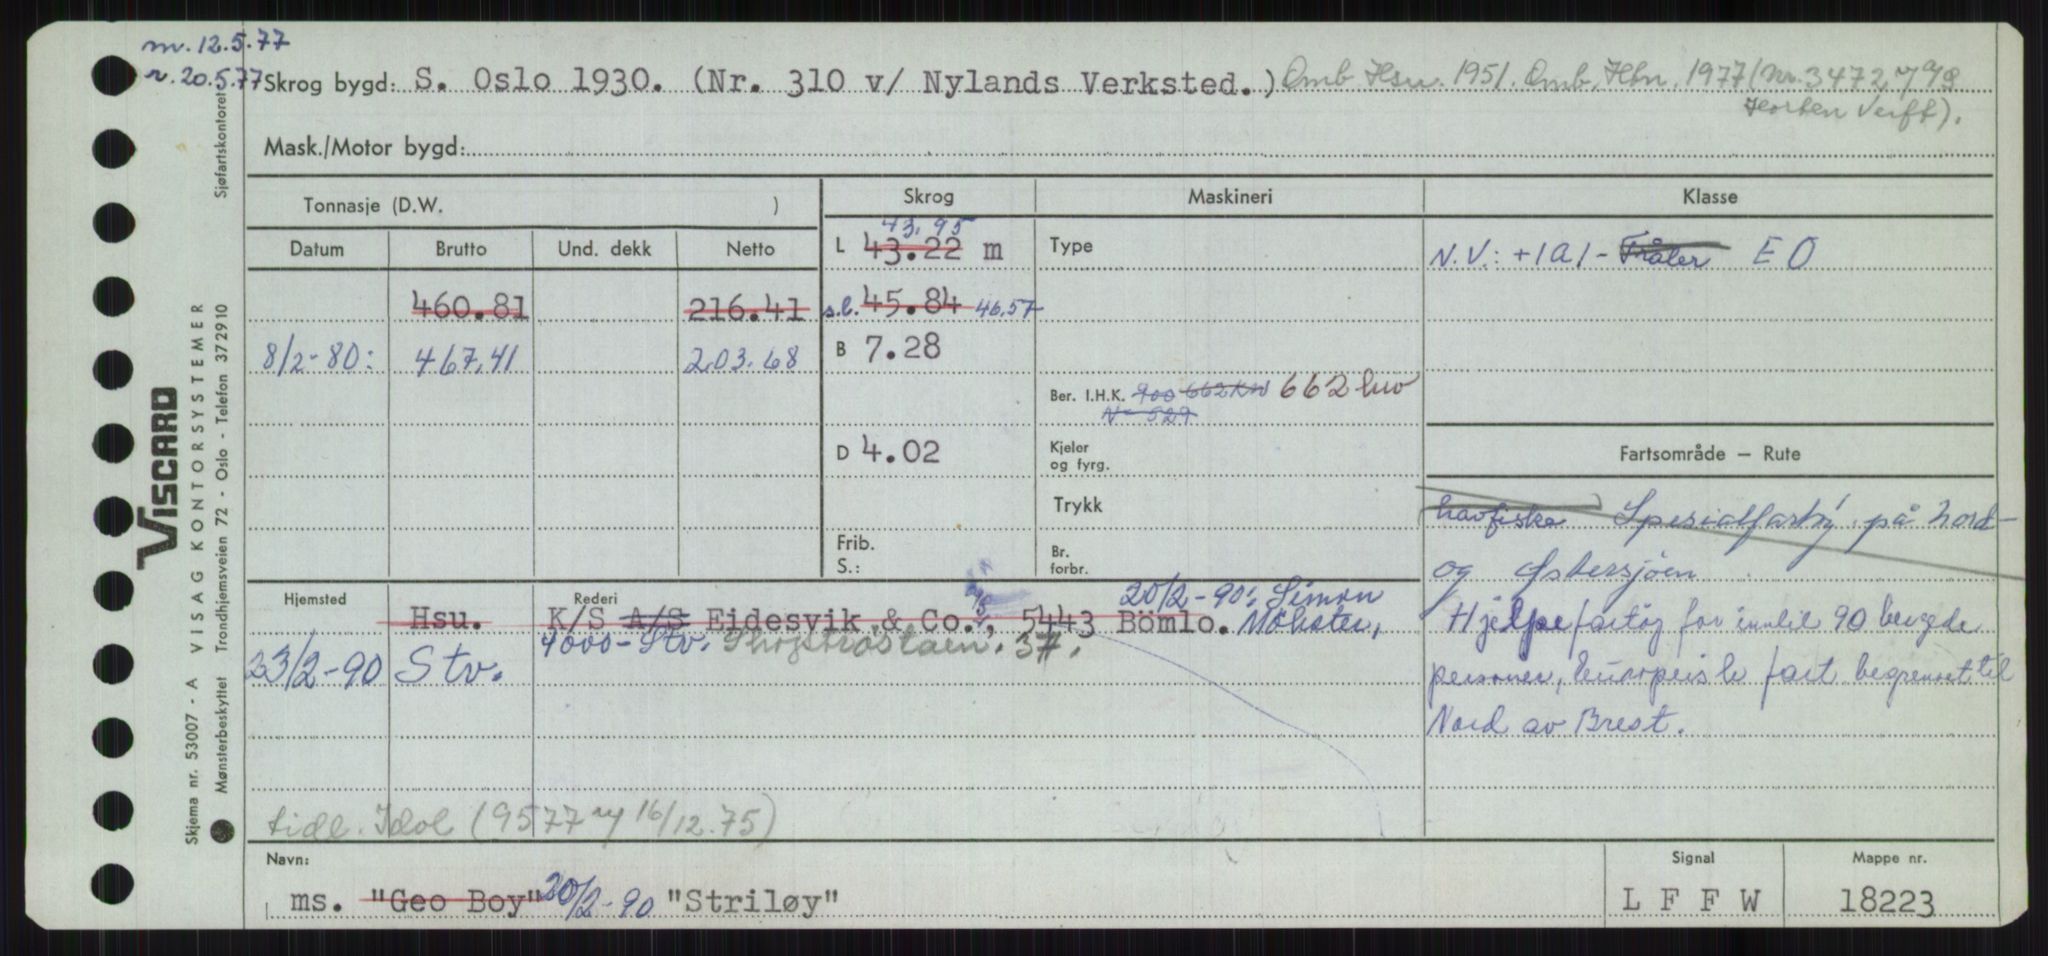 m. 12.5.77
r. 20.5.77
Skrog bygd: S. Oslo 1930. (Nr. 310 v/ Nylands Verksted.) Omb. Hsu. 1951. Omb. Hbn. 1977 (Nr. 3472
Horten Verft).
Mask./Motor bygd:
Tonnasje (D.W. )
Skrog
Maskineri
Klasse
Datum Brutto Und. dekk Netto
43.95
L 43.22 m
Type
N.V.: +1A1- Tråler EO
460.81 216.41
s.l. 45.84 46,57
8/2-80: 467,41 203.68
B 7.28
Ber. I.H.K. 900 662 KW 662 kw
N- 529
D 4.02
Kjeler
og fyrg.
Fartsområde — Rute
Trykk
havfiske Spesialfartøy på Nord-
Frib.
S.:
Br.
forbr.
og Østersjøen
Hjemsted
Rederi
20/2-90: Simon
Hsu. K/S A/S Eidesvik & Co., 5443 Bömlo. Møkster,
4000-Stv. 37.
Hjelpefartøy for inntil 90 bergede
23/2-90 Stv.
personer, europeisk fart begrenset til
Nord av Brest.
tidl. Idol (9577 16/12.75)
Navn:
ms. "Geo Boy" 20/2-90 "Striløy"
Signal
L F F W
Mappe nr.
18223
VISCARD
Skjema nr. 53007 - A VISAG KONTORSYSTEMER
Mønsterbeskyttet Trondhjemsveien 72 - Oslo - Telefon 372910 Sjøfartskontoret